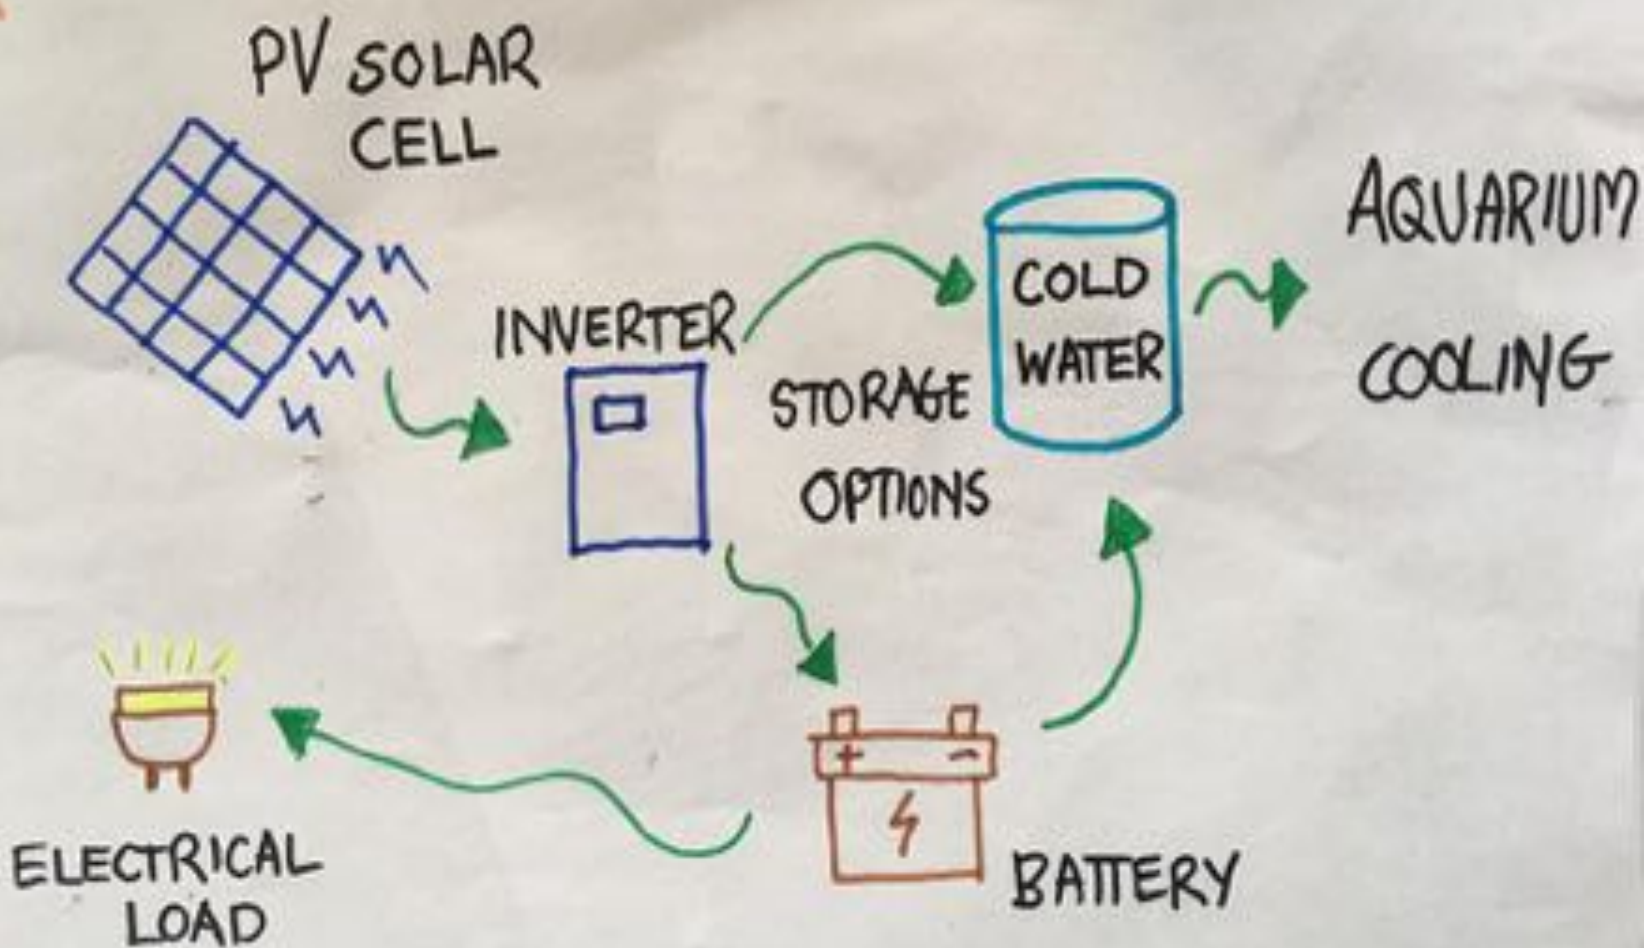 PV SOLAR
CELL
INVERTER
STORAGE
OPTIONS
COLD
WATER
AQUARIUM
COOLING
+ -
BATTERY
ELECTRICAL
LOAD